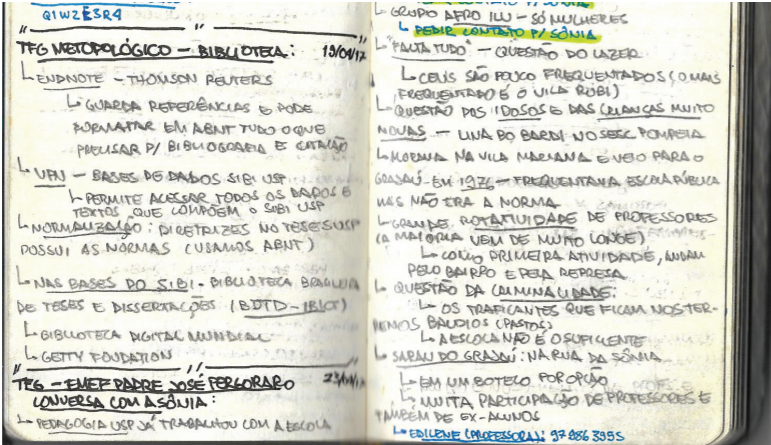 Q1WZESR4
TFG METODOLÓGICO – BIBLIOTECA: 19/04/17
ENDNOTE – THOMSON REUTERS
GUARDA REFERÊNCIAS E PODE
FORMATAR EM ABNT TUDO O QUE
PRECISAR P/ BIBLIOGRAFIA E CITAÇÃO
VPN – BASES DE DADOS SIBI USP
PERMITE ACESSAR TODOS OS DADOS E
TEXTOS QUE COMPÕEM O SIBI USP
NORMALIZAÇÃO: DIRETRIZES NO TESESUSP
POSSUI AS NORMAS (USAMOS ABNT)
NAS BASES DO SIBI - BIBLIOTECA BRASILEIRA
DE TESES E DISSERTAÇÕES (BDTD-IBICT)
BIBLIOTECA DIGITAL MUNDIAL
GETTY FOUNDATION
TFG – EMEF PADRE JOSÉ PERGORARO
CONVERSA COM A SÔNIA:
PEDAGOGIA USP JÁ TRABALHOU COM A ESCOLA
GRUPO AFRO ILU – SÓ MULHERES
PEDIR CONTATO P/ SÔNIA
"FALTA TUDO" – QUESTÃO DO LAZER
CEUS SÃO POUCO FREQUENTADOS (O MAIS
FREQUENTADO É O VILA RUBI)
QUESTÃO DOS IDOSOS E DAS CRIANÇAS MUITO
NOVAS – LINA BO BARDI NO SESC POMPEIA
MORAVA NA VILA MARIANA E VEIO PARA O
GRAJAÚ EM 1976 – FREQUENTAVA ESCOLA PÚBLICA
MAS NÃO ERA A NORMA
GRANDE ROTATIVIDADE DE PROFESSORES
(A MAIORIA VEM DE MUITO LONGE)
COMO PRIMEIRA ATIVIDADE, ANDAM
PELO BAIRRO E PELA REPRESA
QUESTÃO DA CRIMINALIDADE:
OS TRAFICANTES QUE FICAM NOS TER-
RENOS BALDIOS (PASTOS)
A ESCOLA NÃO É O SUFICIENTE
SARAU DO GRAJAÚ: NA RUA DA SÔNIA
EM UM BOTECO POR OPÇÃO
MUITA PARTICIPAÇÃO DE PROFESSORES E
TAMBÉM DE EX-ALUNOS
EDILENE (PROFESSORA): 97486 3995